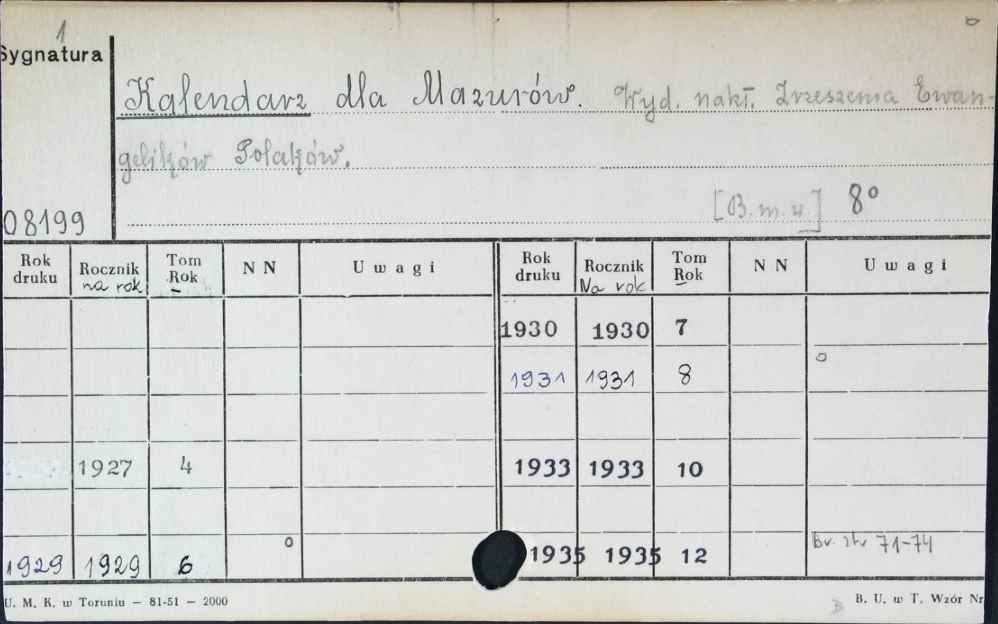 1
Sygnatura
Kalendarz dla Mazurów. Wyd. nakł. Zrzeszenia Ewan-
gelików Polaków.
[B. m. w.] 8°
08199
Rok druku Rocznik na rok Tom Rok N N Uwagi Rok druku Rocznik Na rok Tom Rok N N Uwagi
1930 1930 7
1931 1931 8
1927 4 1933 1933 10
1929 1929 6 1935 1935 12 Br. str 71-74
U. M. K. w Toruniu — 81-51 — 2000
B. U. w T. Wzór Nr